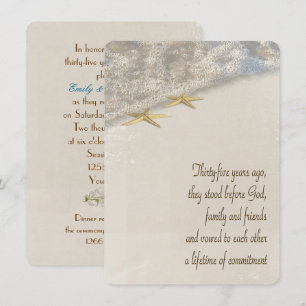 In honor
thirty-five ye
pl
Emily &
as they re
on Saturday
Two thou
at six o'
1255
You
Dinner re
the ceremony
1266
Thirty-five years ago,
they stood before God,
family and friends
and vowed to each other
a lifetime of commitment